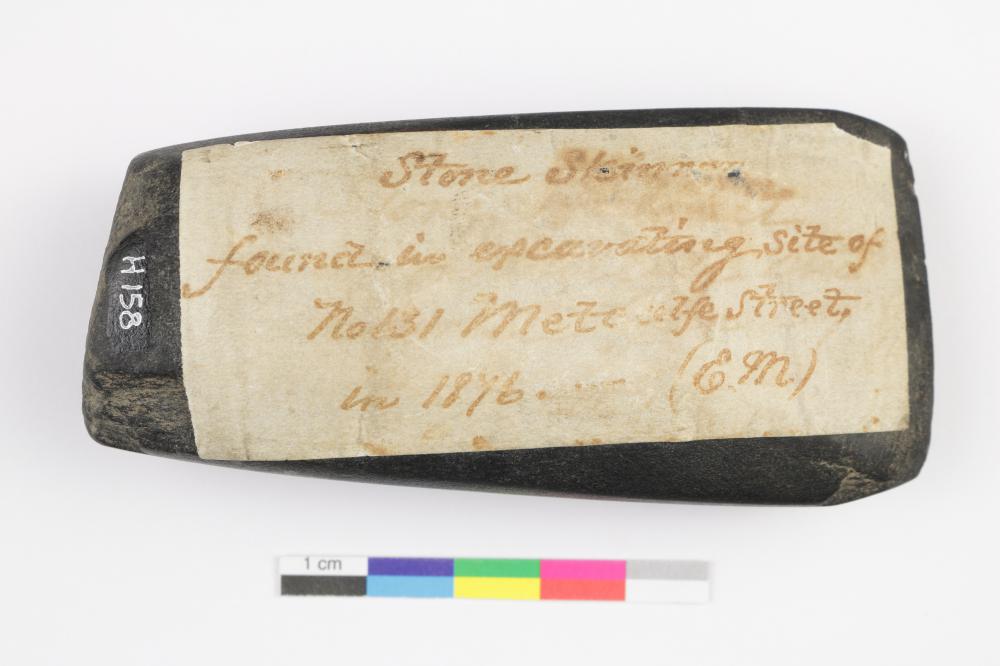 Stone Skinner
found in excavating site of
No 131 Metcalfe Street,
in 1876.
(E.M.)
H 158
1 cm